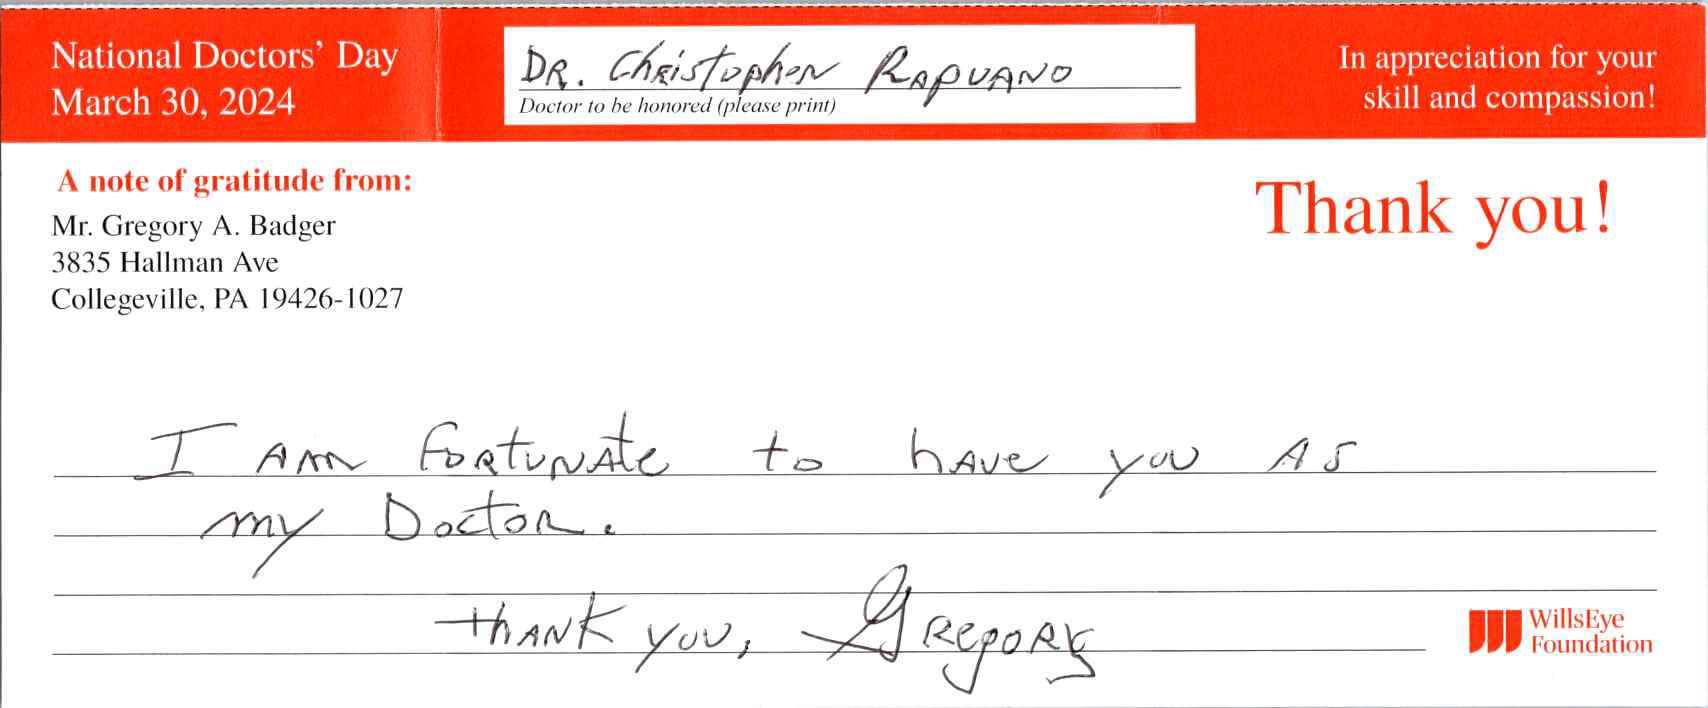 National Doctors' Day
March 30, 2024
DR. Christopher Rapuano
Doctor to be honored (please print)
In appreciation for your
skill and compassion!
A note of gratitude from:
Mr. Gregory A. Badger
3835 Hallman Ave
Collegeville, PA 19426-1027
Thank you!
I am fortunate to have you as
my Doctor.
Thank you, Gregory
WillsEye
Foundation